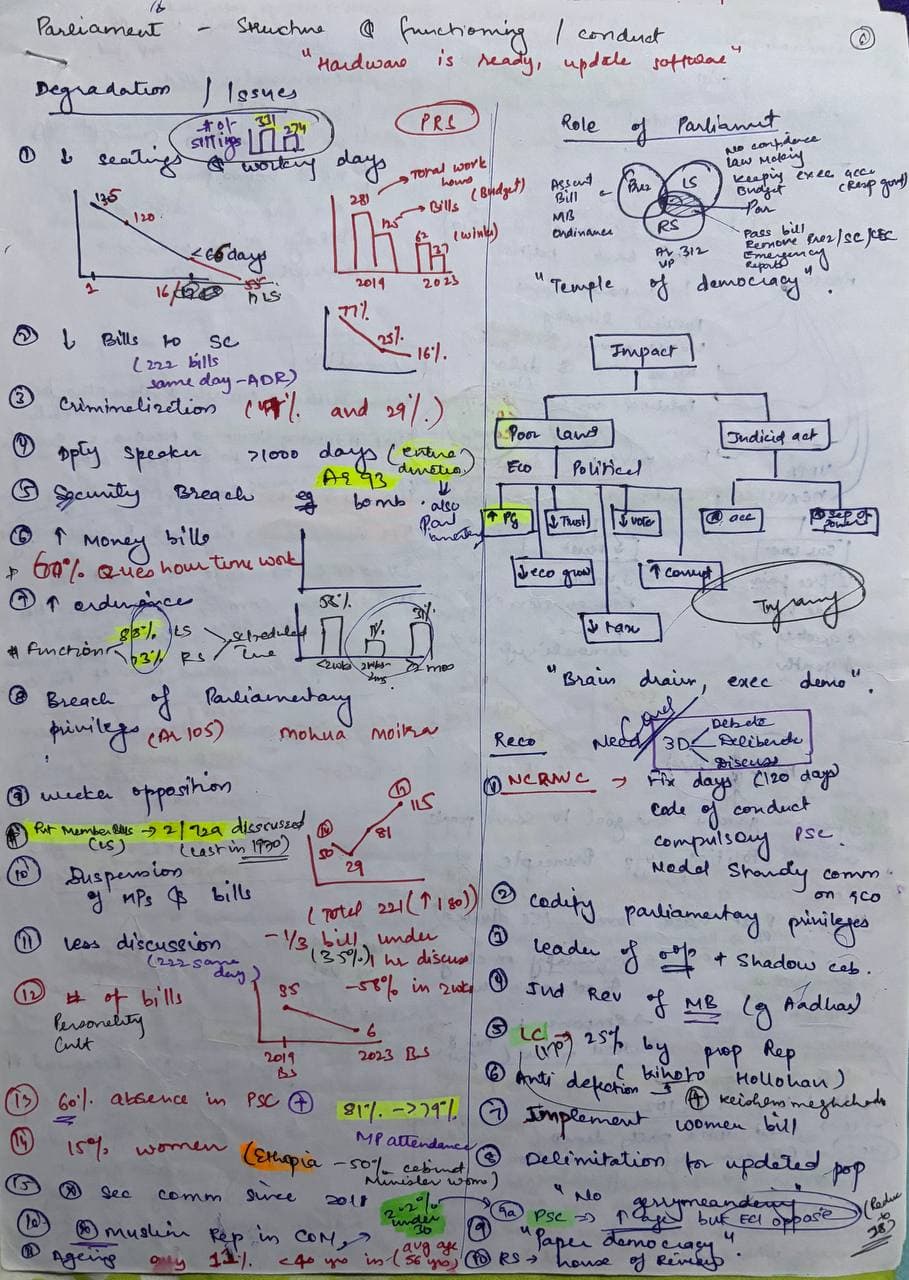 Parliament - Structure & functioning / conduct
"Hardware is ready, update software"
Degradation / Issues
# of sittings 331 274
PRS
① ↓ seatings & working days
135
120
<66 days
1
16/
55
LS
Total work hours
Bills (Budget)
281
125
62 (winter)
37
2019 2023
② ↓ Bills to SC
(222 bills
same day - ADR)
77%
25%
16%
③ Criminalization ( and 29%)
④ Dpty Speaker >1000 days (entire duration)
Ar 93
also
⑤ Security Breach eg bomb.
⑥ ↑ Money bills
+ 60% Ques hour time work
⑦ ↑ ordinances
# Function 88% LS
73% RS
scheduled time
58%
11%
31%
<2wks 2wks-2ms >2 mos
⑧ Breach of Parliamentary
privileges (Ar 105) Mohua Moitra
⑨ weaker opposition
Pvt Member Bills → 2/729 disscussed
(LS) (Last in 1970)
14
50
29
81
17
115
⑩ Suspension
of MPs & bills
(Total 221 (↑180))
⑪ less discussion
(222 same day)
- 1/3 bill under
(35%) 1 hr discuss
- 58% in 2wks
⑫ # of bills
Personality
Cult
85
6
2019 BS
2023 BS
⑬ 60% absence in PSC + 81% -> 79%
MP attendance
⑭ 15% women (Ethopia - 50% cabinet
Minister wom)
⑮ ⊗ Sec comm since 2018
2.2% under 30
⊗ Muslim Rep in COM,
Ageing only 12% <40 yrs in (avg age 56 yrs)
Role of Parliament
Assent Bill
MB
Ordinance
Prez LS
RS
No confidence
Law Making
Keeping exec acc
Budget (Resp govt)
Par
Pass bill
Remove Prez/SC/CEC
Emergency
Reports
Ar 312
VP
"Temple of democracy".
Impact
Poor laws Judicial act
Eco Political
↑ PG ↓ Trust ↓ vote ⊗ acc ⊗ Sep of power
↓ eco grow ↑ Corrupt
↓ tax
Tyranny
"Brain drain, exec demo".
Reco Need
3D Debate
Deliberate
Discuss
① NCRWC → Fix days (120 days)
Code of conduct
compulsory PSC
Nodal Standy comm
on eco
② codify parliamentary privileges
③ Leader of opp + Shadow cab.
④ Jud Rev of MB (eg Aadhar)
⑤ LC → 25% by prop Rep
⑥ Anti defection (kihoto Hollohan)
⑦ Implement women bill
⑧ Delimitation for updated pop
"No gerrymeandering"
9a PSC → ↑ ages but ECI oppose (Reduce to 18)
⑨ "Paper democracy".
⑩ RS → house of Review